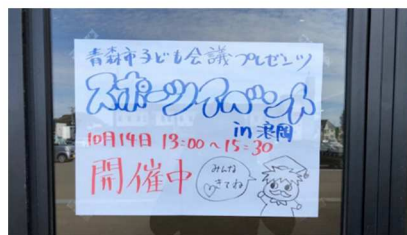 青森市子ども会議プレゼンツ
スポーツイベント
in 浪岡
10月14日 13:00～15:30
開催中
みんな
きてね